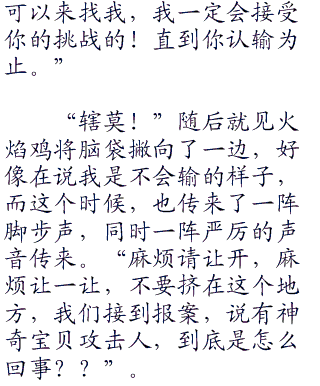 可以来找我，我一定会接受
你的挑战的！直到你认输为
止。”
“辖莫！”随后就见火
焰鸡将脑袋撇向了一边，好
像在说我是不会输的样子，
而这个时候，也传来了一阵
脚步声，同时一阵严厉的声
音传来。“麻烦请让开，麻
烦让一让，不要挤在这个地
方，我们接到报案，说有神
奇宝贝攻击人，到底是怎么
回事？？”。